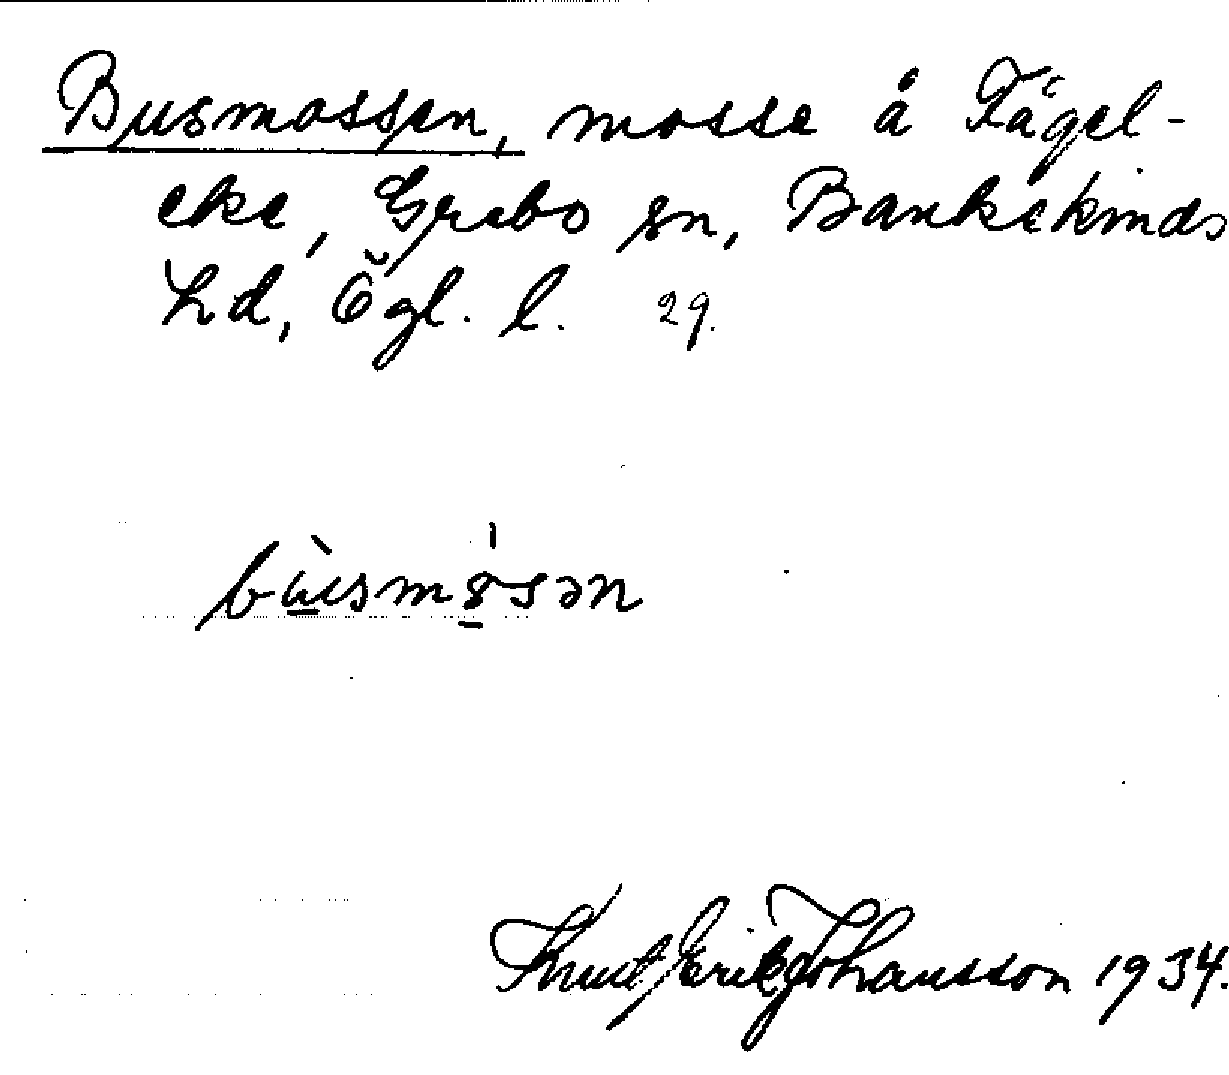 Busmossen, mosse å Fågel-
eke, Grebo sn, Bankekinds
hd, Ögl. l. 29.
bu̠̇̀smo̠̍sən
Knut Erik Johansson 1934.